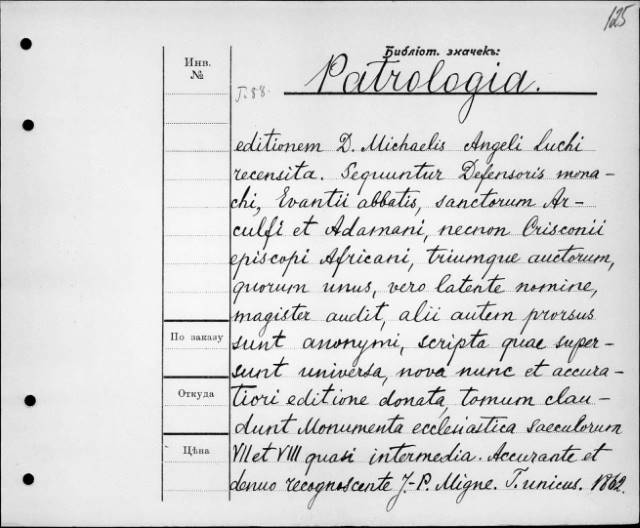 125
Библіот. значекъ:
Инв.
№
Patrologia.
T.88.
editionem D. Michaelis Angeli Luchi
recensita. Sequuntur Defensoris mona-
chi, Evantii abbatis, sanctorum Ar-
culfi et Adamani, necnon Crisconii
episcopi Africani, triumque auctorum,
quorum unus, vero latente nomine,
magister audit, alii autem prorsus
По заказу
sunt anonymi, scripta quae super-
sunt universa, nova nunc et accura-
Откуда
tiori editione donata, tomum clau-
dunt Monumenta ecclesiastica saeculorum
Цѣна
VII et VIII quasi intermedia. Accurante et
denuo recognoscente J.-P. Migne. T. unicus. 1862.